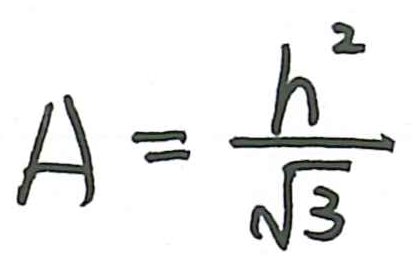 A = h² / √3